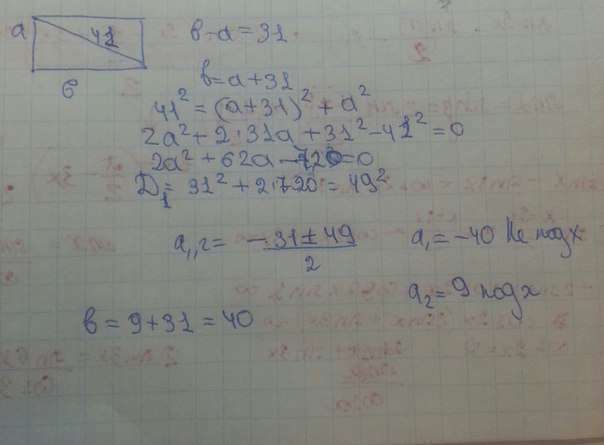 a 41 в - a = 31
в
в = a + 31
41² = (a + 31)² + a²
2a² + 2·31a + 31² - 41² = 0
2a² + 62a - 720 = 0
D₁ = 31² + 2·720 = 49²
a₁,₂ = (-31 ± 49)/2 a₁ = -40 не подх
a₂ = 9 подх
в = 9 + 31 = 40